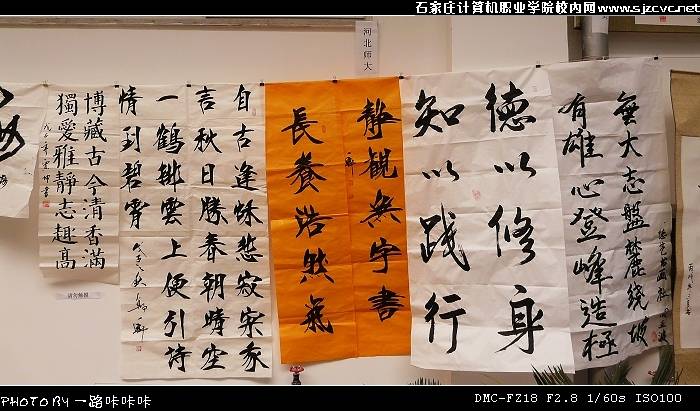 石家庄计算机职业学院校内网www.sjzcvc.net
河北师大
無大志盤麓繞坡
有雄心登峰造極
德以修身
知以践行
静觀無字書
長養浩然氣
自古逢秋悲寂寥我
言秋日勝春朝晴空
一鶴排雲上便引诗
情到碧霄
博藏古今清香滿
獨愛雅靜志趣高
PHOTO BY 一路咔咔咔
DMC-FZ18 F2.8 1/60s ISO100